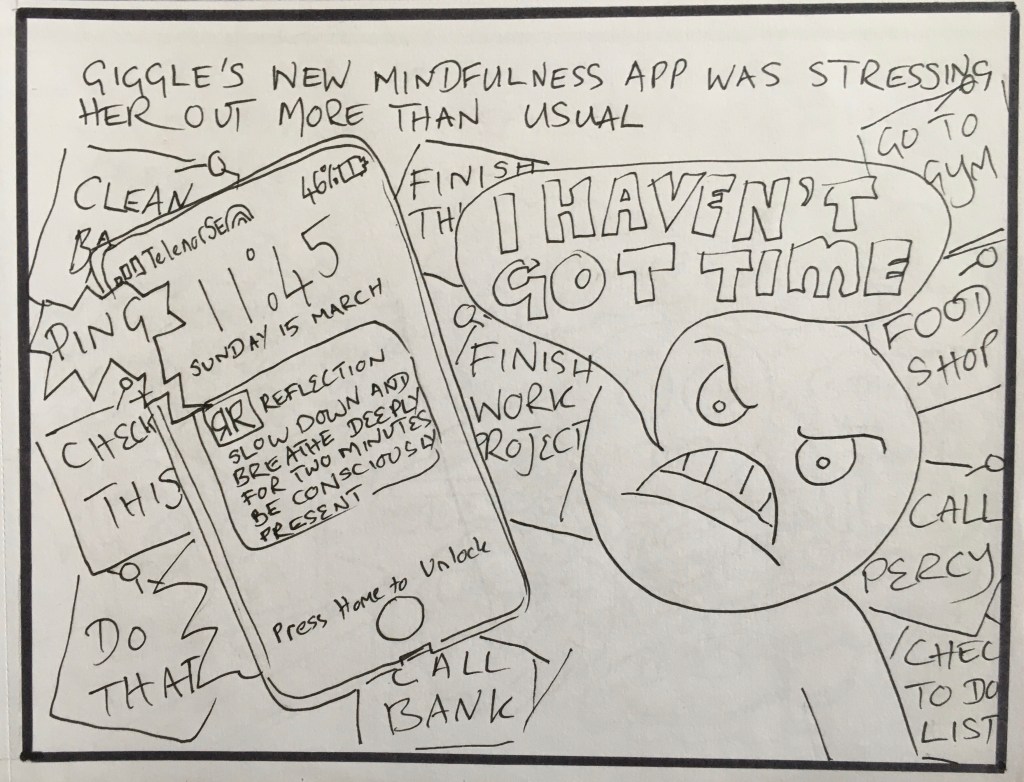 GIGGLE'S NEW MINDFULNESS APP WAS STRESSING
HER OUT MORE THAN USUAL
CLEAN
BA
PING
CHECK
THIS
DO
THAT
46%
Telenor SE
11:45
SUNDAY 15 MARCH
RR REFLECTION
SLOW DOWN AND
BREATHE DEEPLY
FOR TWO MINUTES
BE CONSCIOUSLY
PRESENT
Press Home to Unlock
CALL
BANK
FINISH
TH
FINISH
WORK
PROJECT
I HAVEN'T
GOT TIME
GO TO
GYM
FOOD
SHOP
CALL
PERCY
CHEC
TO DO
LIST